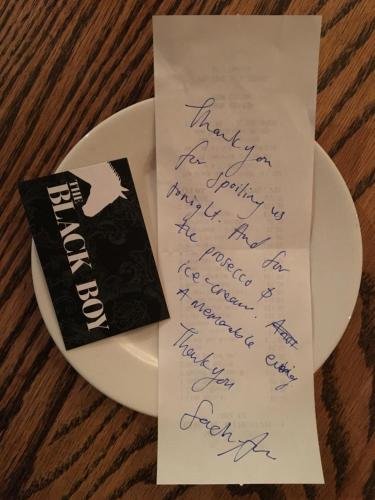 THE
BLACK BOY
Thank you
for spoiling us
tonight. And for
the prosecco &
ice-cream.
A memorable evening
Thank you